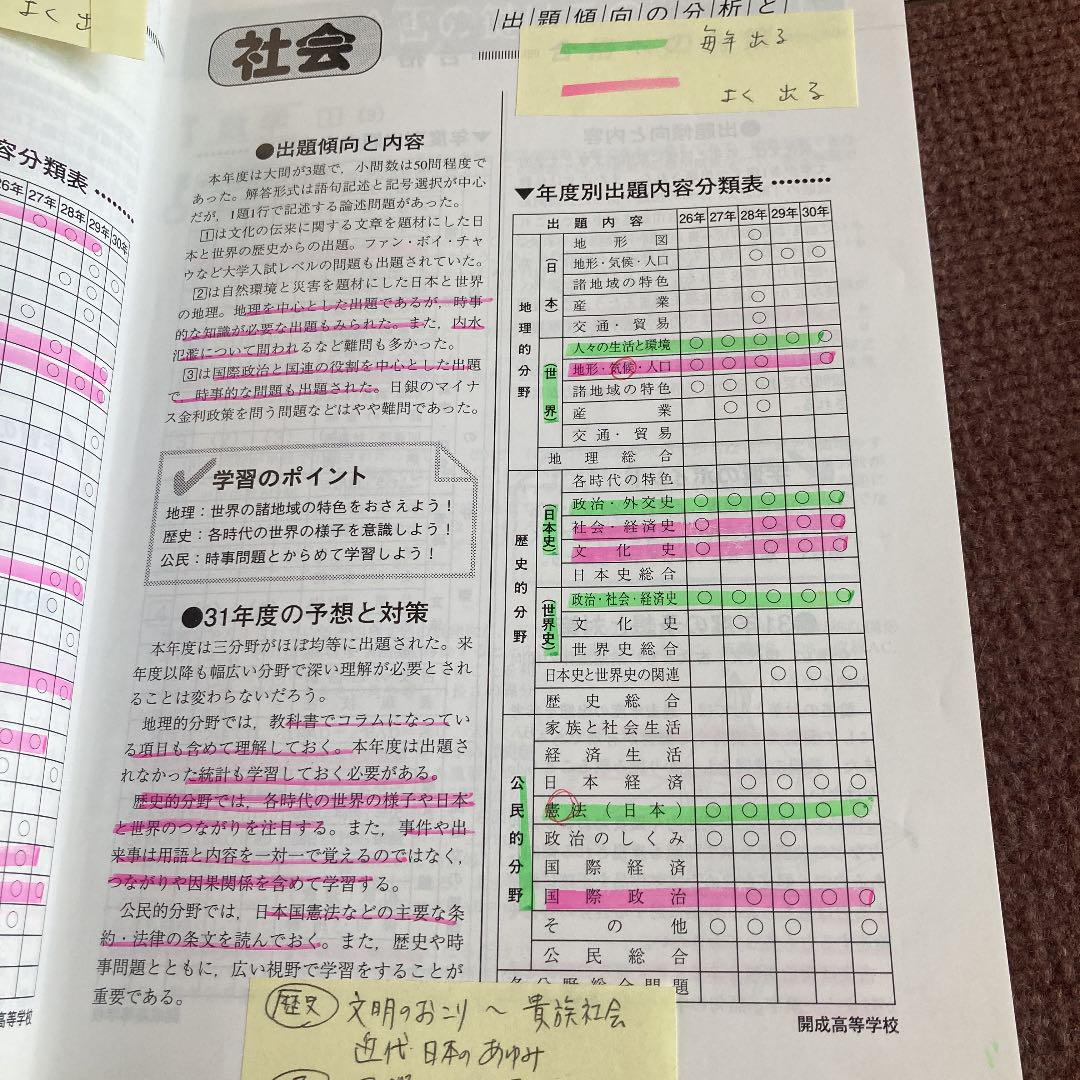 よく出
出題傾向の分析と
毎年出る
よく出る
社会
容分類表 ………
26年 27年 28年 29年 30年
●出題傾向と内容
本年度は大問が3題で，小問数は50問程度で
あった。解答形式は語句記述と記号選択が中心
だが，1題1行で記述する論述問題があった。
1は文化の伝来に関する文章を題材にした日
本と世界の歴史からの出題。ファン・ボイ・チャ
ウなど大学入試レベルの問題も出題されていた。
2は自然環境と災害を題材にした日本と世界
の地理。地理を中心とした出題であるが，時事
的な知識が必要な出題もみられた。また，内水
氾濫について問われるなど難問も多かった。
3は国際政治と国連の役割を中心とした出題
で，時事的な問題も出題された。日銀のマイナ
ス金利政策を問う問題などはやや難問であった。
学習のポイント
地理：世界の諸地域の特色をおさえよう！
歴史：各時代の世界の様子を意識しよう！
公民：時事問題とからめて学習しよう！
●31年度の予想と対策
本年度は三分野がほぼ均等に出題された。来
年度以降も幅広い分野で深い理解が必要とされ
ることは変わらないだろう。
地理的分野では，教科書でコラムになってい
る項目も含めて理解しておく。本年度は出題さ
れなかった統計も学習しておく必要がある。
歴史的分野では，各時代の世界の様子や日本
と世界のつながりを注目する。また，事件や出
来事は用語と内容を一対一で覚えるのではなく，
つながりや因果関係を含めて学習する。
公民的分野では，日本国憲法などの主要な条
約・法律の条文を読んでおく。また，歴史や時
事問題とともに，広い視野で学習をすることが
重要である。
▼年度別出題内容分類表 ………
出題内容 26年 27年 28年 29年 30年
地理的分野
（日本）
地形図 ○
地形・気候・人口 ○ ○ ○
諸地域の特色
産業 ○
交通・貿易 ○
（世界）
人々の生活と環境 ○ ○ ○ ○ ○
地形・気候・人口 ○ ○ ○ ○
諸地域の特色 ○ ○ ○
産業 ○ ○
交通・貿易
地理総合
歴史的分野
（日本史）
各時代の特色
政治・外交史 ○ ○ ○ ○ ○
社会・経済史 ○ ○ ○ ○
文化史 ○ ○ ○ ○
日本史総合
（世界史）
政治・社会・経済史 ○ ○ ○ ○ ○
文化史 ○
世界史総合
日本史と世界史の関連 ○ ○ ○
歴史総合
公民的分野
家族と社会生活
経済生活
日本経済 ○ ○ ○ ○
憲法（日本） ○ ○ ○ ○ ○
政治のしくみ ○ ○ ○
国際経済
国際政治 ○ ○ ○ ○
その他 ○ ○ ○ ○
公民総合
各分野総合問題
開成高等学校
高等学校
歴史 文明のおこり～貴族社会
近代日本のあゆみ